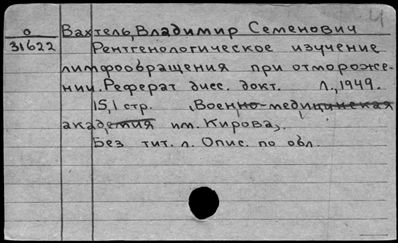 4
о Вахтель, Владимир Семенович
31622 Рентгенологическое изучение
лимфообращения при отмороже-
нии. Реферат дисс. докт. Л., 1949.
15,1 стр. (Военно-медицинская
академия им. Кирова).
Без тит. л. Опис. по обл.